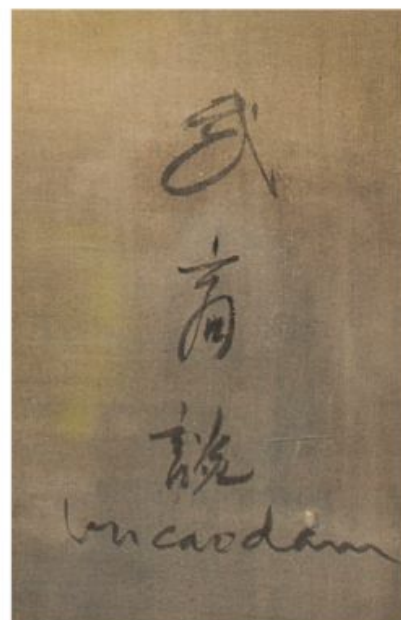 武
高
談
vu cao dam